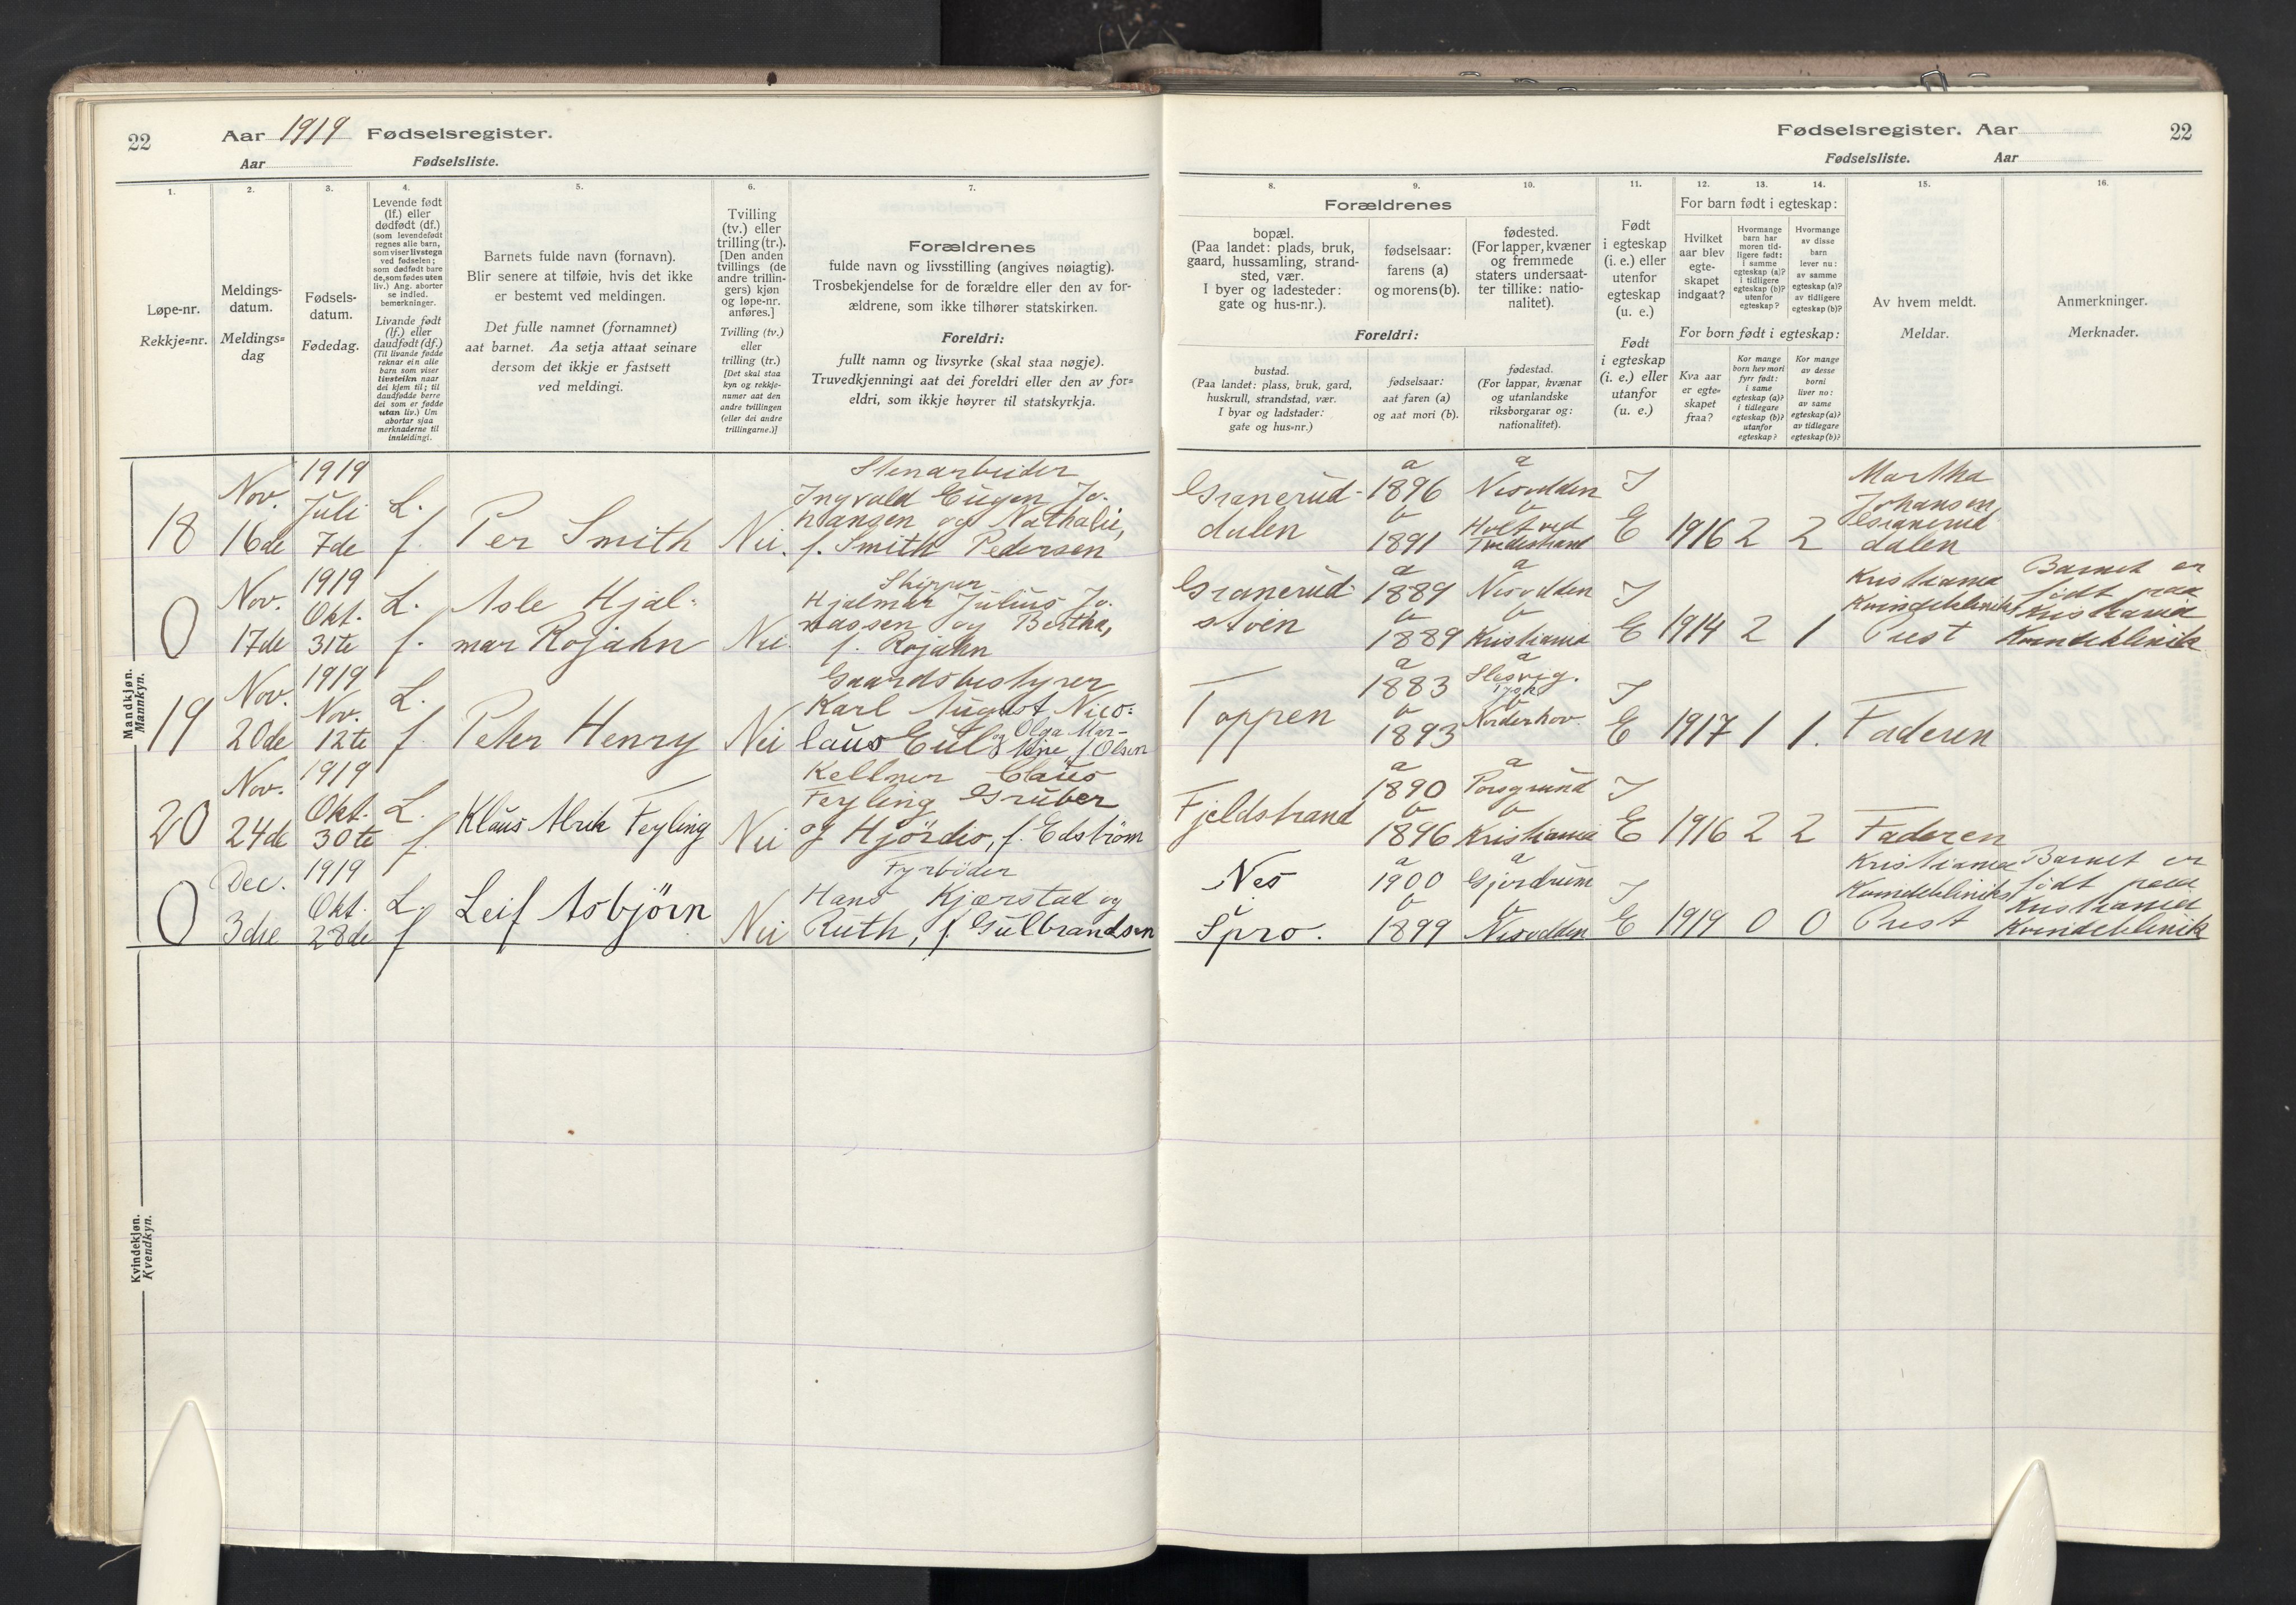 22
Aar 1919 Fødselsregister.
Aar Fødselsliste.
1.
Løpe-nr.
Rekkje=nr.
2.
Meldings-
datum.
Meldings=
dag
3.
Fødsels-
datum.
Fødedag.
4.
Levende født
(lf.) eller
dødfødt (df.)
(som levendefødt
regnes alle barn,
som viser livstegn
ved fødselen;
som dødfødt bare
de, som fødes uten
liv.) Ang. aborter
se indled.
bemerkninger.
Livande født
(lf.) eller
daudfødt (df.)
(Til livande fødde
reknar ein alle
barn som viser
livsteikn naar
dei kjem til; til
daudfødde berre
dei som er fødde
utan liv.) Um
abortar sjaa
merknaderne til
innleidingi.
5.
Barnets fulde navn (fornavn).
Blir senere at tilføie, hvis det ikke
er bestemt ved meldingen.
Det fulle namnet (fornamnet)
aat barnet. Aa setja attaat seinare
dersom det ikkje er fastsett
ved meldingi.
6.
Tvilling
(tv.) eller
trilling (tr.).
[Den anden
tvillings (de
andre trillin-
gers) kjøn
og løpe-nr.
anføres.]
Tvilling (tv.)
eller
trilling (tr.)
[Det skal staa
kyn og rekkje-
numer aat den
andre tvillingen
(eller dei andre
trillingarne.)]
7.
Forældrenes
fulde navn og livsstilling (angives nøiagtig).
Trosbekjendelse for de forældre eller den av for-
ældrene, som ikke tilhører statskirken.
Foreldri:
fullt namn og livsyrke (skal staa nøgje).
Truvedkjenningi aat dei foreldri eller den av for=
eldri, som ikkje høyrer til statskyrkja.
Mandkjøn.
Mannkyn.
18
Nov.
16de
1919
Juli
7de
L.
f.
Per Smith
Nei.
Stenarbeider
Ingvald Eugen Jo-
hansen og Nathalie,
f. Smith Pedersen
0
Nov.
17de
1919
Okt.
31te
L.
f.
Asle Hjal-
mar Rojahn
Nei.
Skipper
Hjalmar Julius Jo-
nassen og Bertha,
f. Rojahn
19
Nov.
20de
1919
Nov.
12te
L.
f.
Peter Henry
Nei
Gaardsbestyrer
Karl August Nico-
laus Euls og Olga Mar-
tine f. Olsen
20
Nov.
24de
1919
Okt.
30te
L.
f.
Klaus Alrik Feyling
Nei
Kellner Claus
Feyling Gruber
og Hjördis, f. Edström
0
Dec.
3die
1919
Okt.
28de
L.
f
Leif Asbjörn
Nei
Fyrböder
Hans Kjærstad og
Ruth, f. Gulbrandsen
Kvindekjøn.
Kvendkyn.
Fødselsregister. Aar
22
Fødselsliste. Aar
Forældrenes
8.
bopæl.
(Paa landet: plads, bruk,
gaard, hussamling, strand-
sted, vær.
I byer og ladesteder:
gate og hus-nr.).
9.
fødselsaar:
farens (a)
og morens (b).
10.
fødested.
(For lapper, kvæner
og fremmede
staters undersaat-
ter tillike: natio-
nalitet).
Foreldri:
bustad.
(Paa landet: plass, bruk, gard,
huskrull, strandstad, vær.
I byar og ladstader:
gate og hus=nr.)
fødselsaar:
aat faren (a)
og aat mori (b).
fødestad.
(For lappar, kvænar
og utanlandske
riksborgarar og:
nationalitet).
11.
Født
i egteskap
(i. e.) eller
utenfor
egteskap
(u. e.)
Født
i egteskap
(i. e.) eller
utanfor
(u. e.)
For barn født i egteskap:
12.
Hvilket
aar blev
egte-
skapet
indgaat?
13.
Hvormange
barn har
moren tid-
ligere født:
i samme
egteskap (a)?
i tidligere
egteskap (b)?
utenfor
egteskap?
14.
Hvormange
av disse
barn
lever nu:
av samme
egteskap (a)?
av tidligere
egteskap (b)?
For born født i egteskap:
Kva aar
er egte-
skapet
fraa?
Kor mange
born hev mori
fyrr født:
i same
egteskap (a)?
i tidlegare
egteskap (b)?
utanfor
egteskap?
Kor mange
av desse
borni
liver no:
av same
egteskap (a)?
av tidlegare
egteskap (b)?
15.
Av hvem meldt.
Meldar.
16.
Anmerkninger.
Merknader.
Granerud-
dalen
a
1896
b
1891
a
Nesodden
b
Holt ved
Tvedestrand
I
E
1916 2 2
Martha
Johansen
Granerud
dalen
Granerud-
stuen
a
1889
b
1889
a
Nesodden
b
Kristiania
I
E
1914 2 1
Kristiania
Kvindekliniks
Prest
Barnet er
født paa
Kristiania
Kvindeklinik
Toppen
a
1883
b
1893
a
Slesvig.
Tysk
b
Norderhov.
I
E
1917 1 1.
Faderen
Fjeldstrand
a
1890
b
1896
a
Porsgrund
b
Kristiania
I
E
1916 2 2
Faderen
Nes
Spro.
a
1900
b
1899
a
Gjerdrum
b
Nesodden
I
E
1919 0 0
Kristiania
Kvindekliniks
Prest
Barnet er
født paa
Kristiania
Kvindeklinik